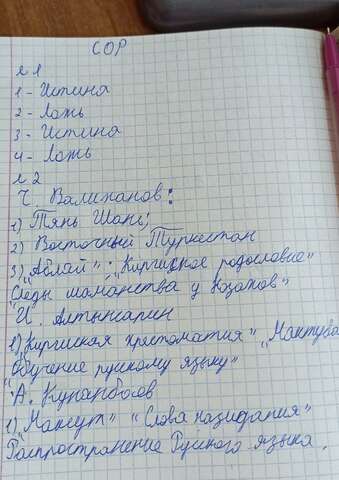 СОР
№1
1 - Истина
2 - Ложь
3 - Истина
4 - Ложь
№2
Ч. Валиханов:
1) Тянь Шань;
2) Восточный Туркестан
3) "Аблай"; "Киргизское родословие"
"Следы шаманства у Казахов"
И. Алтынсарин
1) "Киргизская хрестоматия" "Мактубат"
"Обучение русскому языку"
А. Кунанбаев
1) "Максут" "Слова назидания"
Распространение Русского языка.